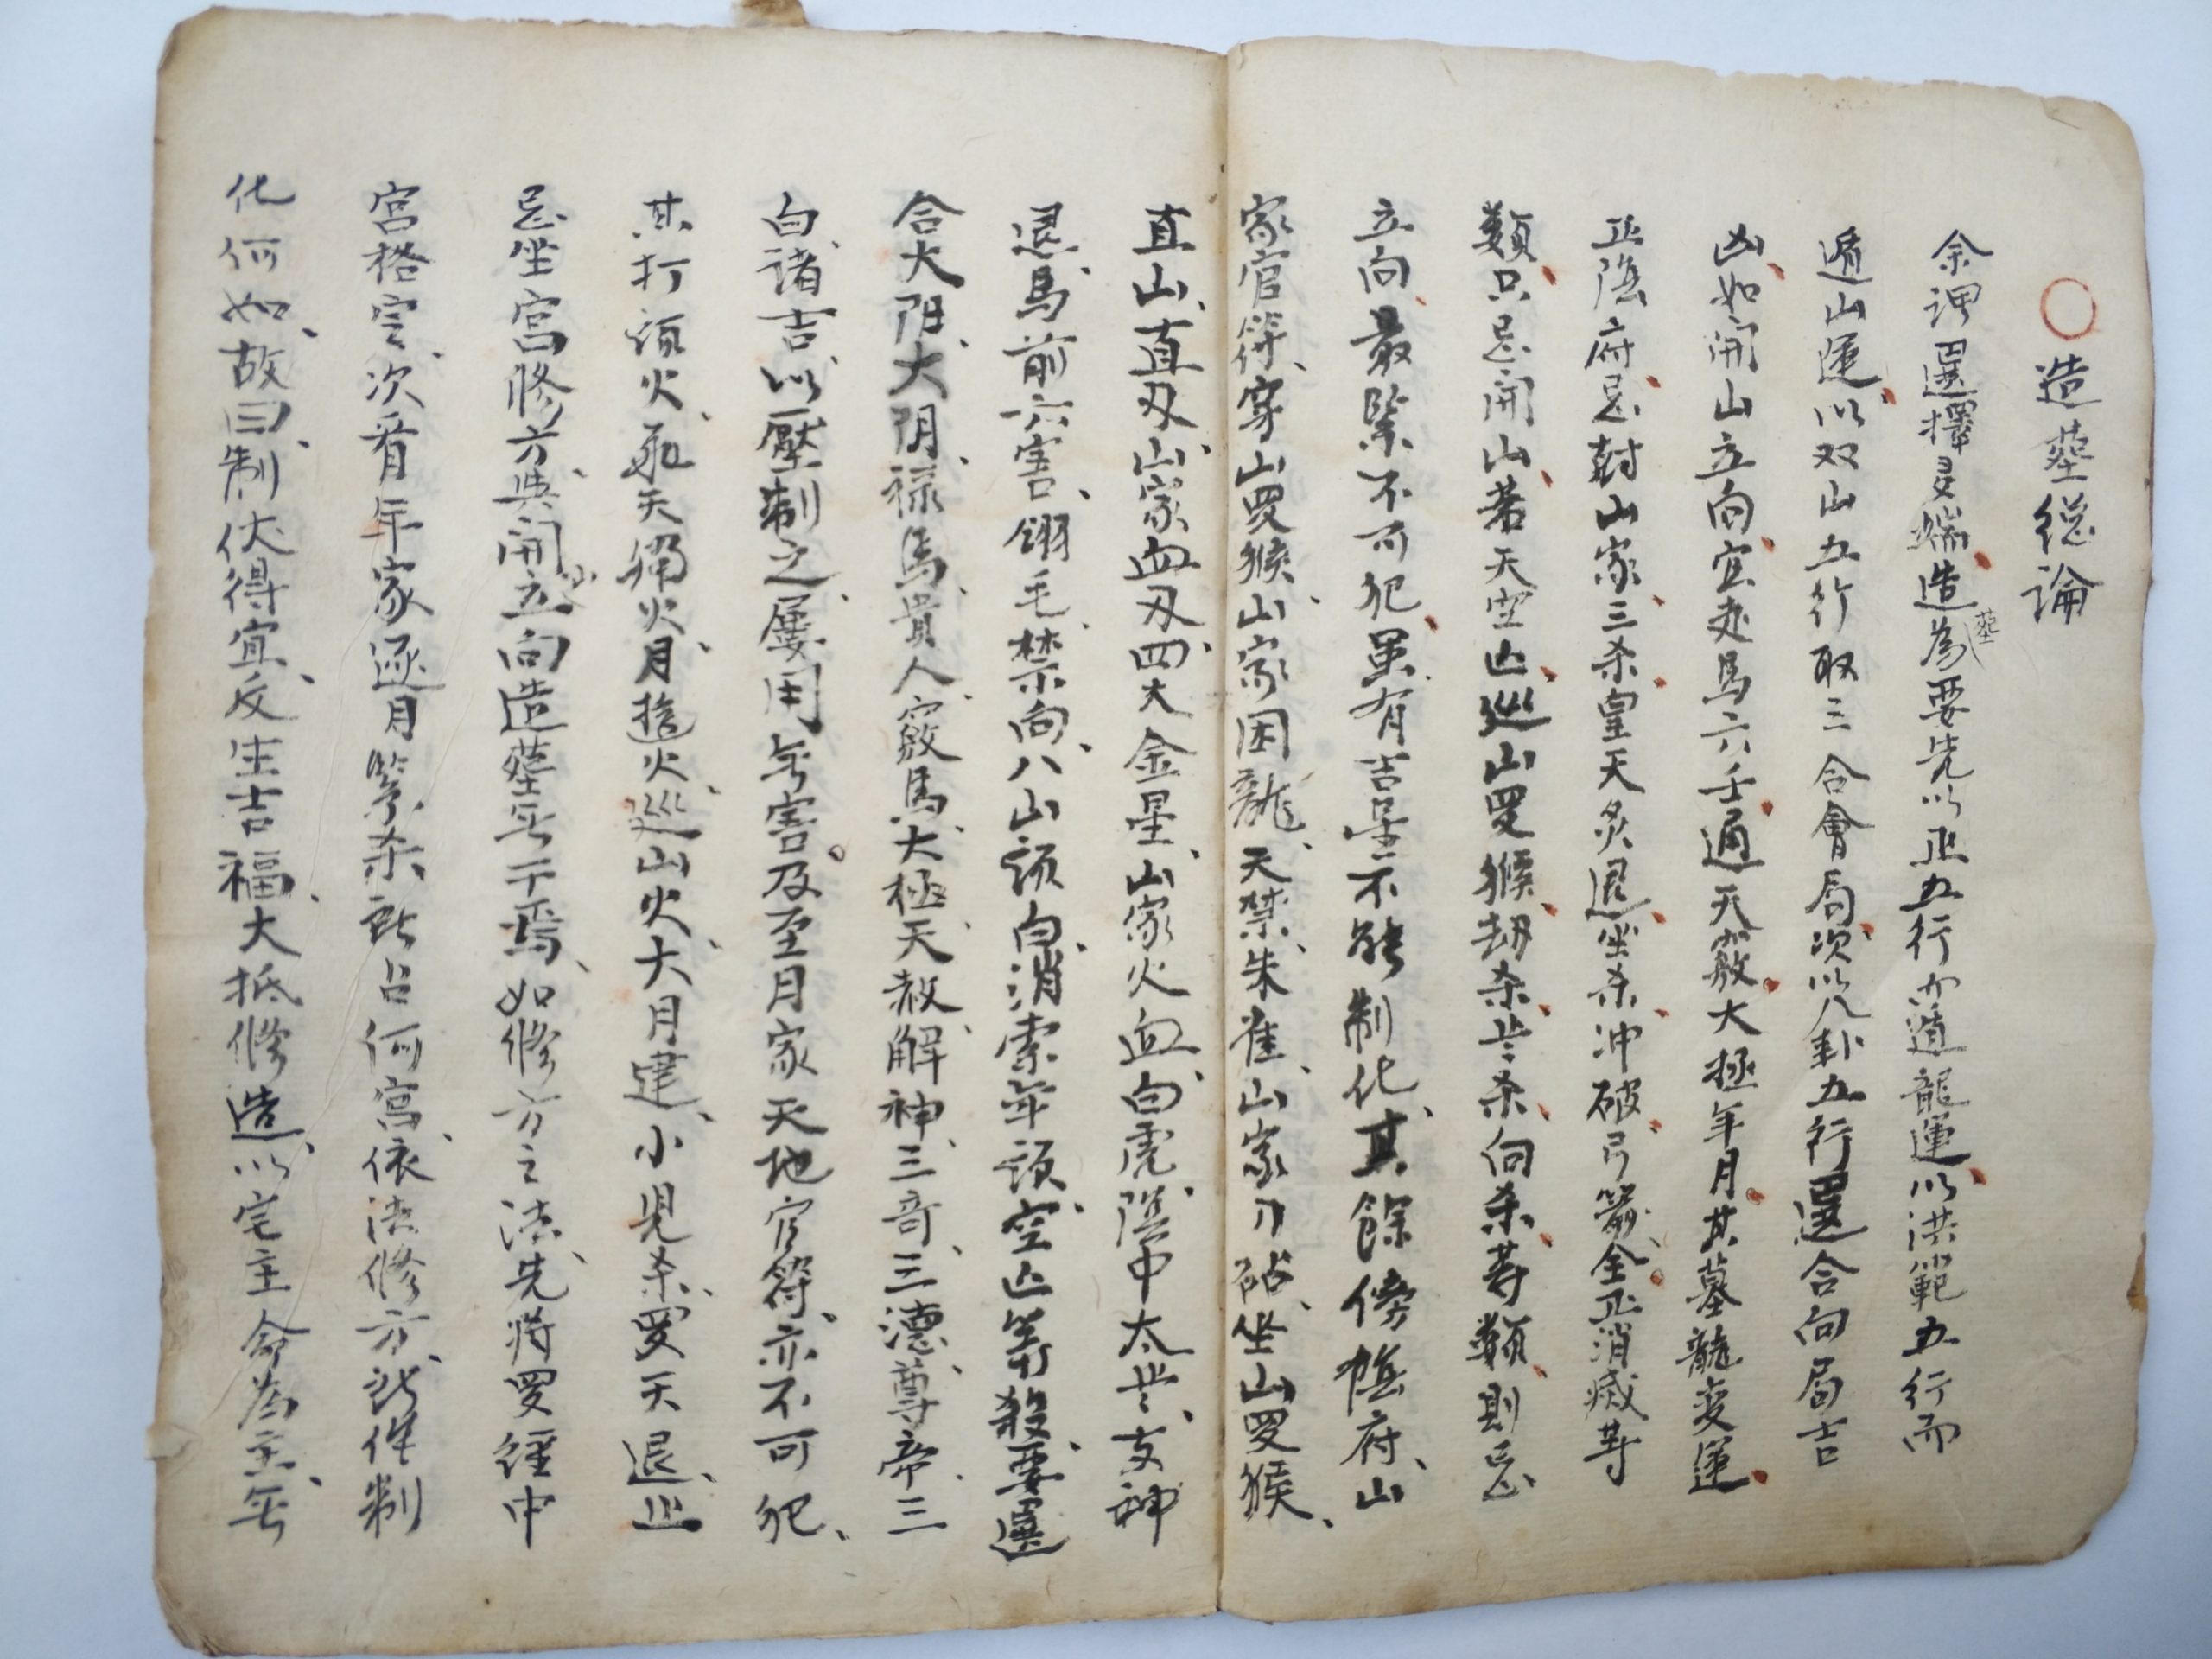 ○造葬總論
余謂選擇多端造葬為要先以正五行而遁龍運以洪範五行而
遁山運以双山五行取三合會局次以八卦五行選合向局吉
凶如開山立向宜走馬六壬通天竅大極年月其墓龍変運
正陰府忌尅山家三杀皇天炙退坐杀冲破弓箭全正消滅等
類只忌開山若天空亡巡山罗猴刼杀歲杀向杀等類則忌
立向最緊不可犯虽有吉星不能制化其餘傍陰府山
家官符穿山罗猴山家困龍天禁朱雀山家刀砧坐山罗猴
直山直刃山家血刃四大金星山家火血白虎陰中太歲支神
退馬前六害翎毛禁向八山頭白消索年頭空亡等殺要選
合太阳太阴禄馬貴人竅馬大極天赦解神三奇三德尊帝三
白諸吉以壓制之屢用無害及至月家天地官符亦不可犯
其打頭火飛天獨火月遊火巡山火大月建小兒杀受天退止
忌坐宮修方與開山立向造葬無干焉如修方之法先將罗經中
宮格定次看年家逐月等杀所占何宮依法修方所作制
化何如故曰制伏得宜反生吉福大抵修造以宅主命為主無